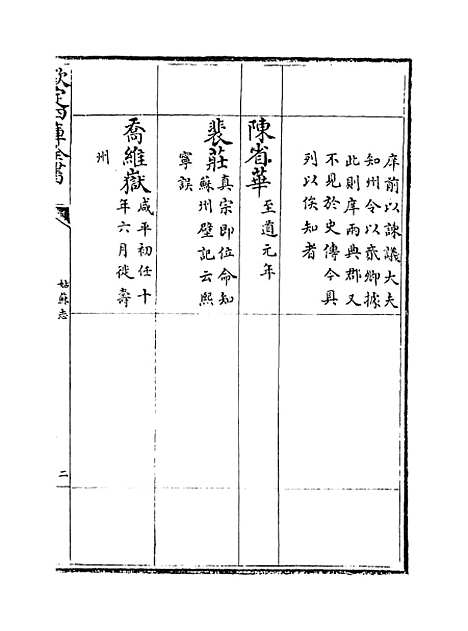 庠前以諫議大夫
知州今以亰卿據
此則庠兩典郡又
不見於史傳今具
列以俟知者
陳省華 至道元年
裴莊 真宗即位命知
蘇州壁記云熙
寧誤
喬維嶽 咸平初任十
年六月徙壽
州
欽定四庫全書
姑蘇志
二